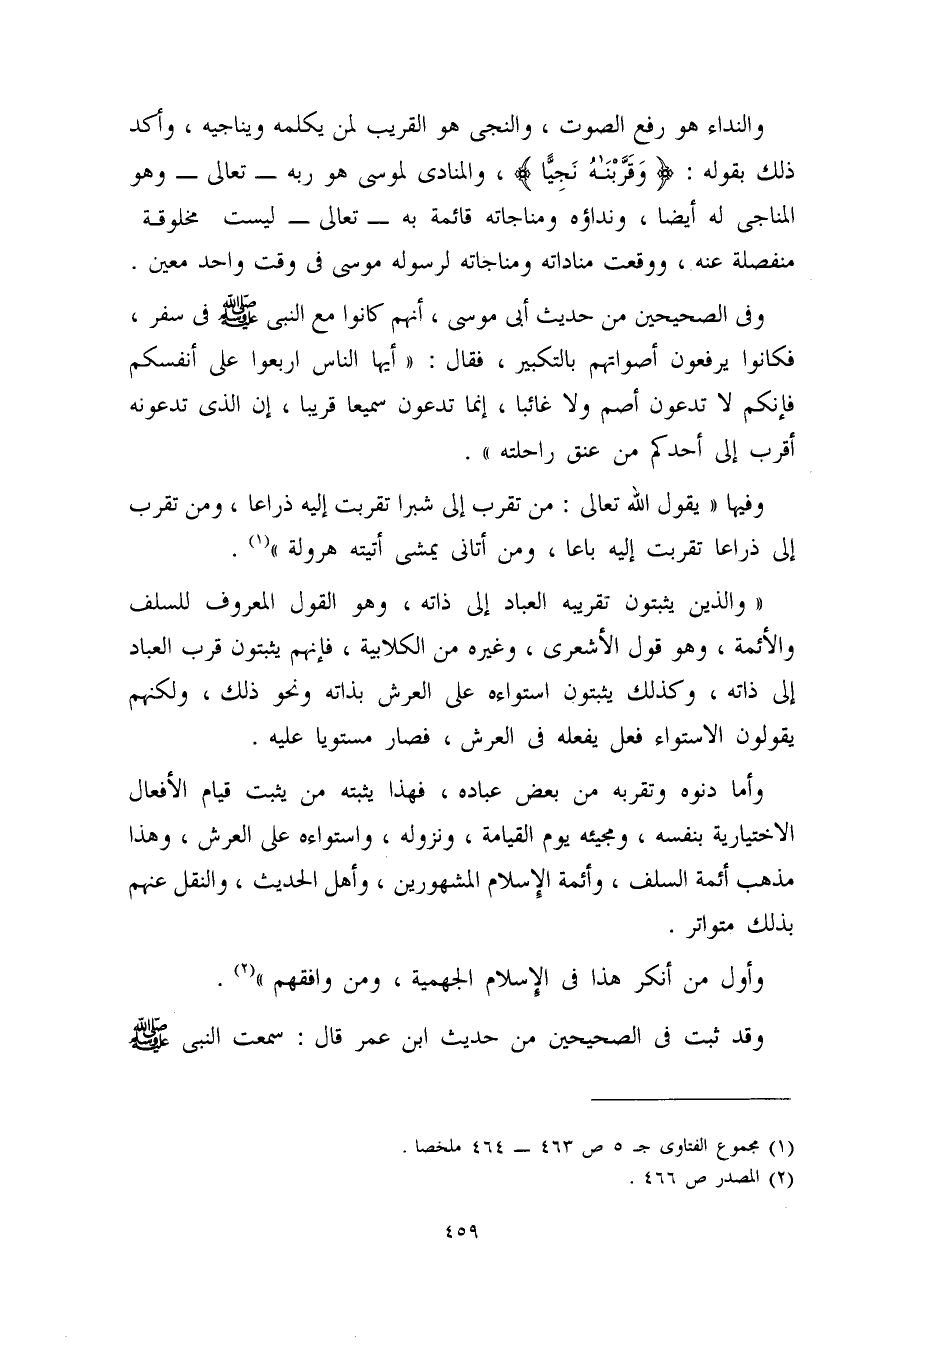 والنداء هو رفع الصوت ، والنجى هو القريب لمن يكلمه ويناجيه ، وأكد
ذلك بقوله : ﴿ وَقَرَّبْنَـٰهُ نَجِيًّا ﴾ ، والمنادى لموسى هو ربه — تعالى — وهو
المناجى له أيضا ، ونداؤه ومناجاته قائمة به — تعالى — ليست مخلوقة
منفصلة عنه ، ووقعت مناداته ومناجاته لرسوله موسى فى وقت واحد معين .
وفى الصحيحين من حديث أبى موسى ، أنهم كانوا مع النبى ﷺ فى سفر ،
فكانوا يرفعون أصواتهم بالتكبير ، فقال : « أيها الناس اربعوا على أنفسكم
فإنكم لا تدعون أصم ولا غائبا ، إنما تدعون سميعا قريبا ، إن الذى تدعونه
أقرب إلى أحدكم من عنق راحلته » .
وفيها « يقول الله تعالى : من تقرب إلى شبرا تقربت إليه ذراعا ، ومن تقرب
إلى ذراعا تقربت إليه باعا ، ومن أتانى يمشى أتيته هرولة »(١) .
« والذين يثبتون تقريبه العباد إلى ذاته ، وهو القول المعروف للسلف
والأئمة ، وهو قول الأشعرى ، وغيره من الكلابية ، فإنهم يثبتون قرب العباد
إلى ذاته ، وكذلك يثبتون استواءه على العرش بذاته ونحو ذلك ، ولكنهم
يقولون الاستواء فعل يفعله فى العرش ، فصار مستويا عليه .
وأما دنوه وتقربه من بعض عباده ، فهذا يثبته من يثبت قيام الأفعال
الاختيارية بنفسه ، ومجيئه يوم القيامة ، ونزوله ، واستواءه على العرش ، وهذا
مذهب أئمة السلف ، وأئمة الإسلام المشهورين ، وأهل الحديث ، والنقل عنهم
بذلك متواتر .
وأول من أنكر هذا فى الإسلام الجهمية ، ومن وافقهم »(٢) .
وقد ثبت فى الصحيحين من حديث ابن عمر قال : سمعت النبى ﷺ
(١) مجموع الفتاوى جـ ٥ ص ٤٦٣ — ٤٦٤ ملخصا .
(٢) المصدر ص ٤٦٦ .
٤٥٩